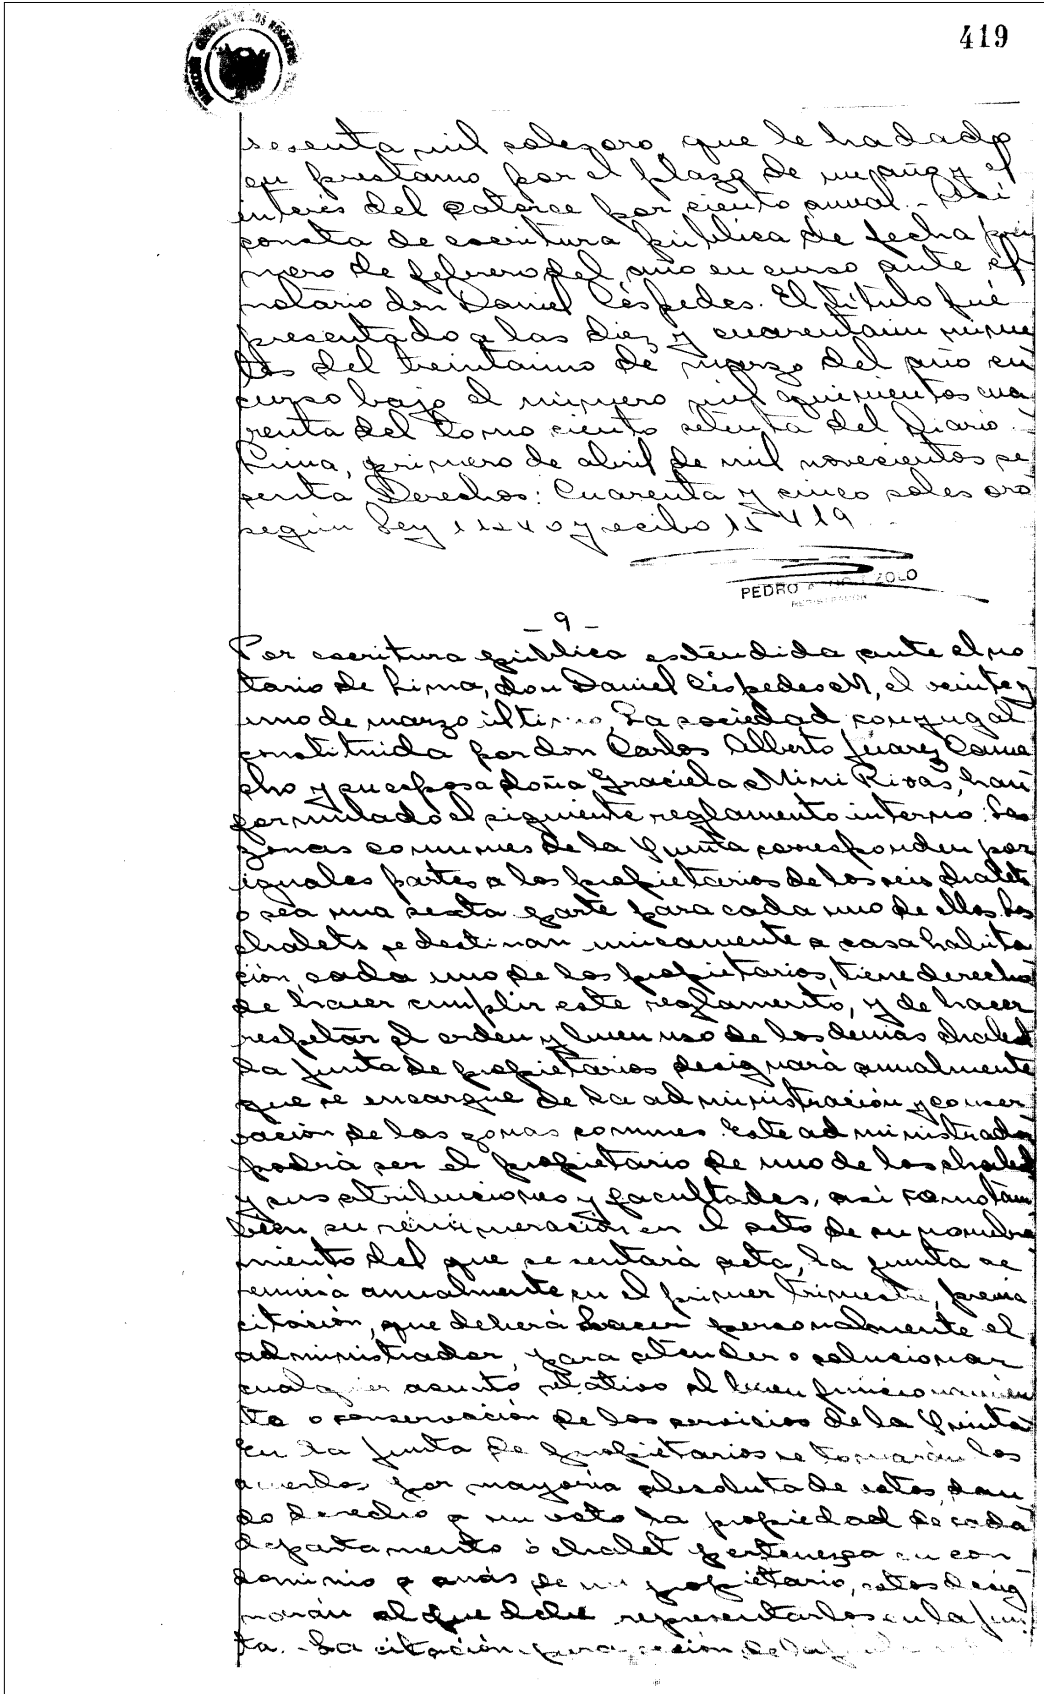 419
sesenta mil soles oro, que le ha dado
en prestamo por el plazo de un año y el
interés del catorce por ciento anual.- Así
consta de escritura pública de fecha pri
mero de febrero del año en curso ante el
notario don Daniel Céspedes. El título fué
presentado a las diez y cuarentaiun minu
tos del treintaiuno de marzo del año en
curso bajo el número mil quinientos cua
renta del tomo ciento setenta del Diario.-
Lima, primero de abril de mil novecientos se
senta Derechos: Cuarenta y cinco soles oro
según Ley y recibo
PEDRO
- 9 -
Por escritura pública extendida ante el no
tario de Lima, don Daniel Céspedes M, el veinte y
uno de marzo último, la sociedad conyugal
constituida por don Carlos Alberto Juarez Cama
cho y su esposa doña Graciela Mimi Rivas, han
formulado el siguiente reglamento interno: Las
zonas comunes de la Quinta corresponden por
iguales partes a los propietarios de los seis chalets
o sea una sexta parte para cada uno de ellos, los
chalets se destinan unicamente a casa habita
ción, cada uno de los propietarios, tiene derecho
de hacer cumplir este reglamento, y de hacer
respetar el orden y buen uso de los demás chalets
la junta de propietarios designará anualmente
que se encargue de la administración y conser
vación de las zonas comunes. Este administrador
podrá ser el propietario de uno de los chalets
y sus atribuciones y facultades, así como tam
bién su remuneración en el acto de su nombra
miento del que se sentará acta, la junta se
reunirá anualmente en el primer trimestre, previa
citación, que deberá hacer personalmente el
administrador, para atender o solucionar
cualquier asunto relativo al buen funcionamien
to o conservación de los servicios de la Quinta
En la junta de propietarios se tomarán los
acuerdos por mayoría absoluta de votos, dan
do derecho a un voto la propiedad de cada
departamento ó chalet pertenezca en con
dominio a más de un propietario, estos desig
narán al que debe representarlos en la jun
ta.- La citación para sesión de la